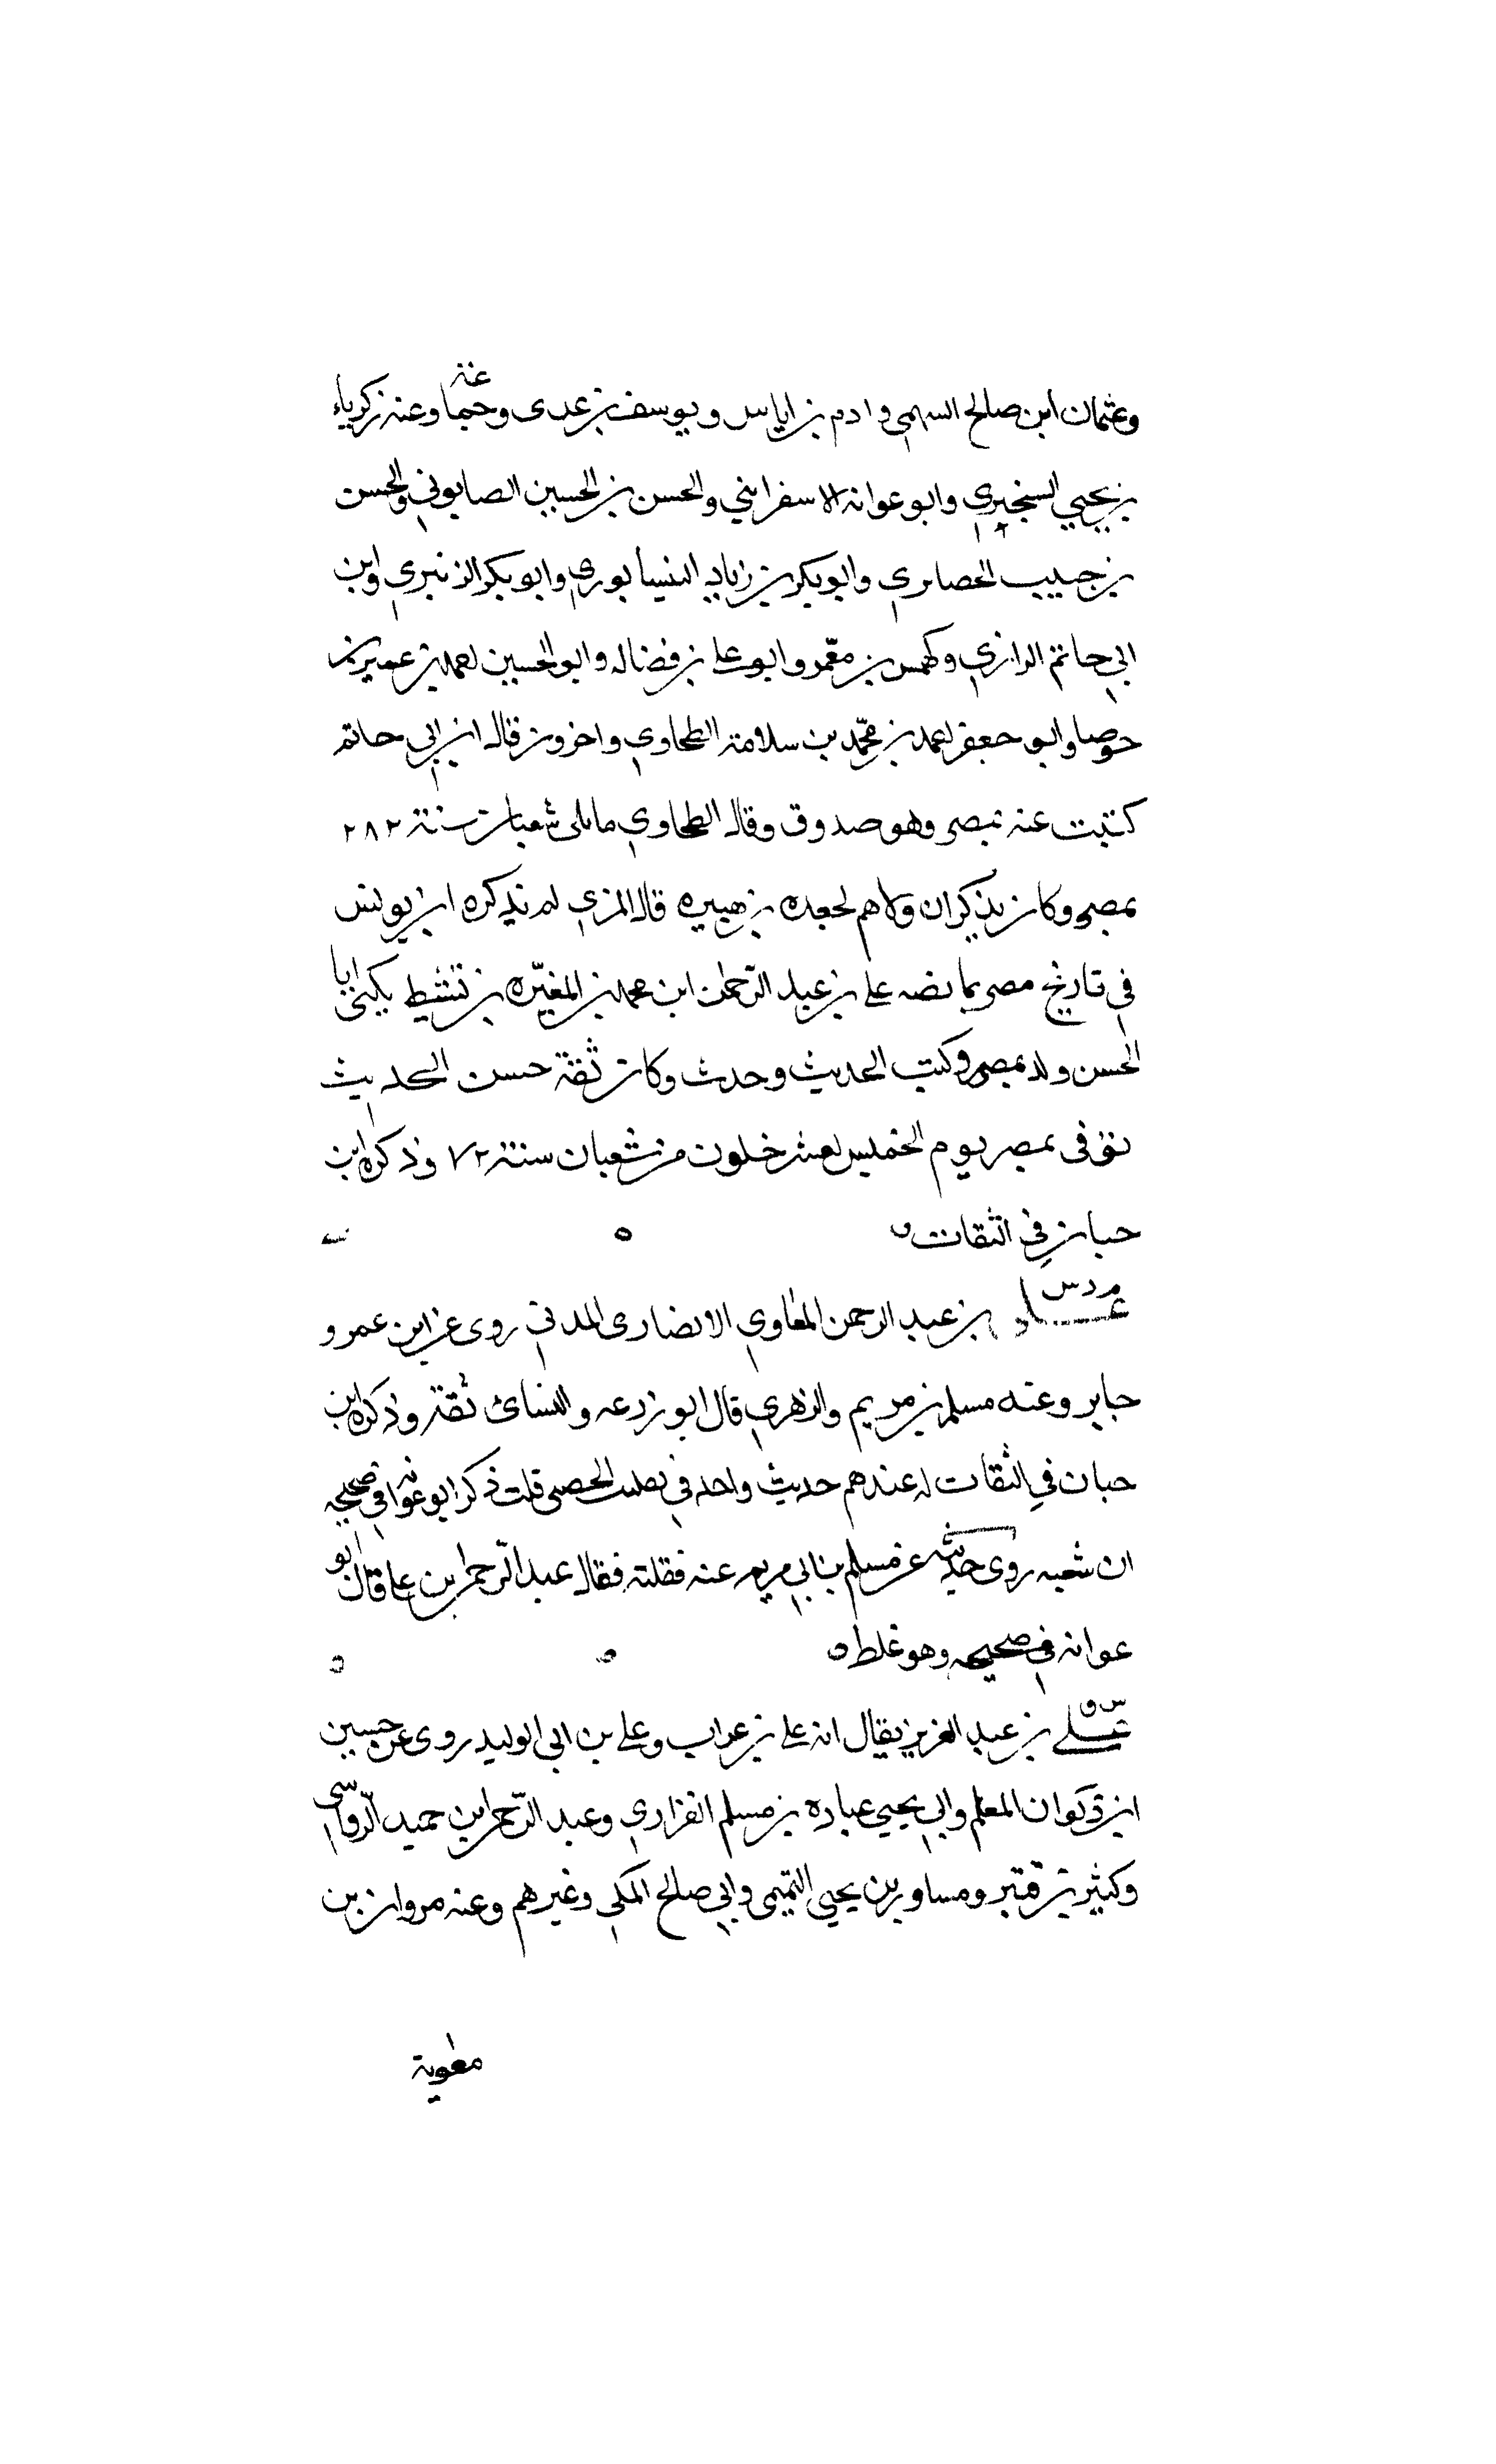 وعثمان ابن صالح السهمي وادم بن اياس ويوسف بن عدى وجماعة وعنه زكرياء
بن يحيي السنجيري وابو عوانه الاسفرايني والحسن بن الحسين الصابوني والحسن
بن حبيب الحصايري وابو بكر بن زياد النيسابوري وابو بكر الزنبري وابن
ابي حاتم الرازي وكهمس بن معمر وابو علي بن فضاله وابو الحسين احمد بن عمير بن
حوصا وابو جعفر احمد بن محمد بن سلامة الطحاوي واخرون قال ابن ابي حاتم
كتبت عنه بمصر وهو صدوق وقال الطحاوي مات في شعبان سنة ٢٨٢
بمصر وكان يذكر ان ولاهم لجعده بن هبيره قال المزي لم يذكره ابن يونس
في تاريخ مصر بما نصه علي بن عبد الرحمن ابن محمد بن المغيره بن نشيط يكنى ابا
الحسن ولد بمصر وكتب الحديث وحدث وكان ثقة حسن الحديث
توفى بمصر يوم الخميس لعشر خلون من شعبان سنة ٧٢ وذكره ابن
حبان في الثقات ٥
م د س علي بن عبد الرحمن المعاوي الانصارى المدني روى عن ابن عمر و
جابر وعنه مسلم بن مريم والزهري قال ابو زرعه والنسائ ثقة وذكره ابن
حبان في الثقات له عندهم حديث واحد في تقليب الحصى قلت ذكر ابو عوانه في صحيحه
ان شعبه روى حديثه عن مسلم بن ابي مريم عنه فقلبه فقال عبد الرحمن بن علي قال ابو
عوانه في صحيحه وهو غلط ٥
س ق علي بن عبد العزيز يقال انه علي بن غراب وعلي بن ابي الوليد روى عن حسين
ابن ذكوان المعلم وابي يحيي عباده بن مسلم الفزاري وعبد الرحمن ابن حميد الرواسى
وكثير بن قنبر ومساور بن يحيي التميمي وابي صالح المكي وغيرهم وعنه مروان بن
معوية